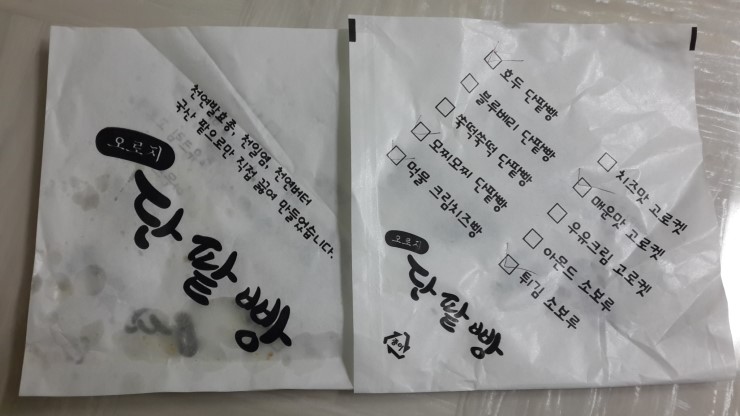 천연발효종, 천일염, 천연버터
국산 팥으로만 직접 끓여 만들었습니다.
오로지
단팥빵
호두 단팥빵
블루베리 단팥빵
쑥떡쑥떡 단팥빵
모찌모찌 단팥빵
먹물 크림치즈빵
치즈맛 고로켓
매운맛 고로켓
우유크림 고로켓
아몬드 소보루
튀김 소보루
오로지
단팥빵